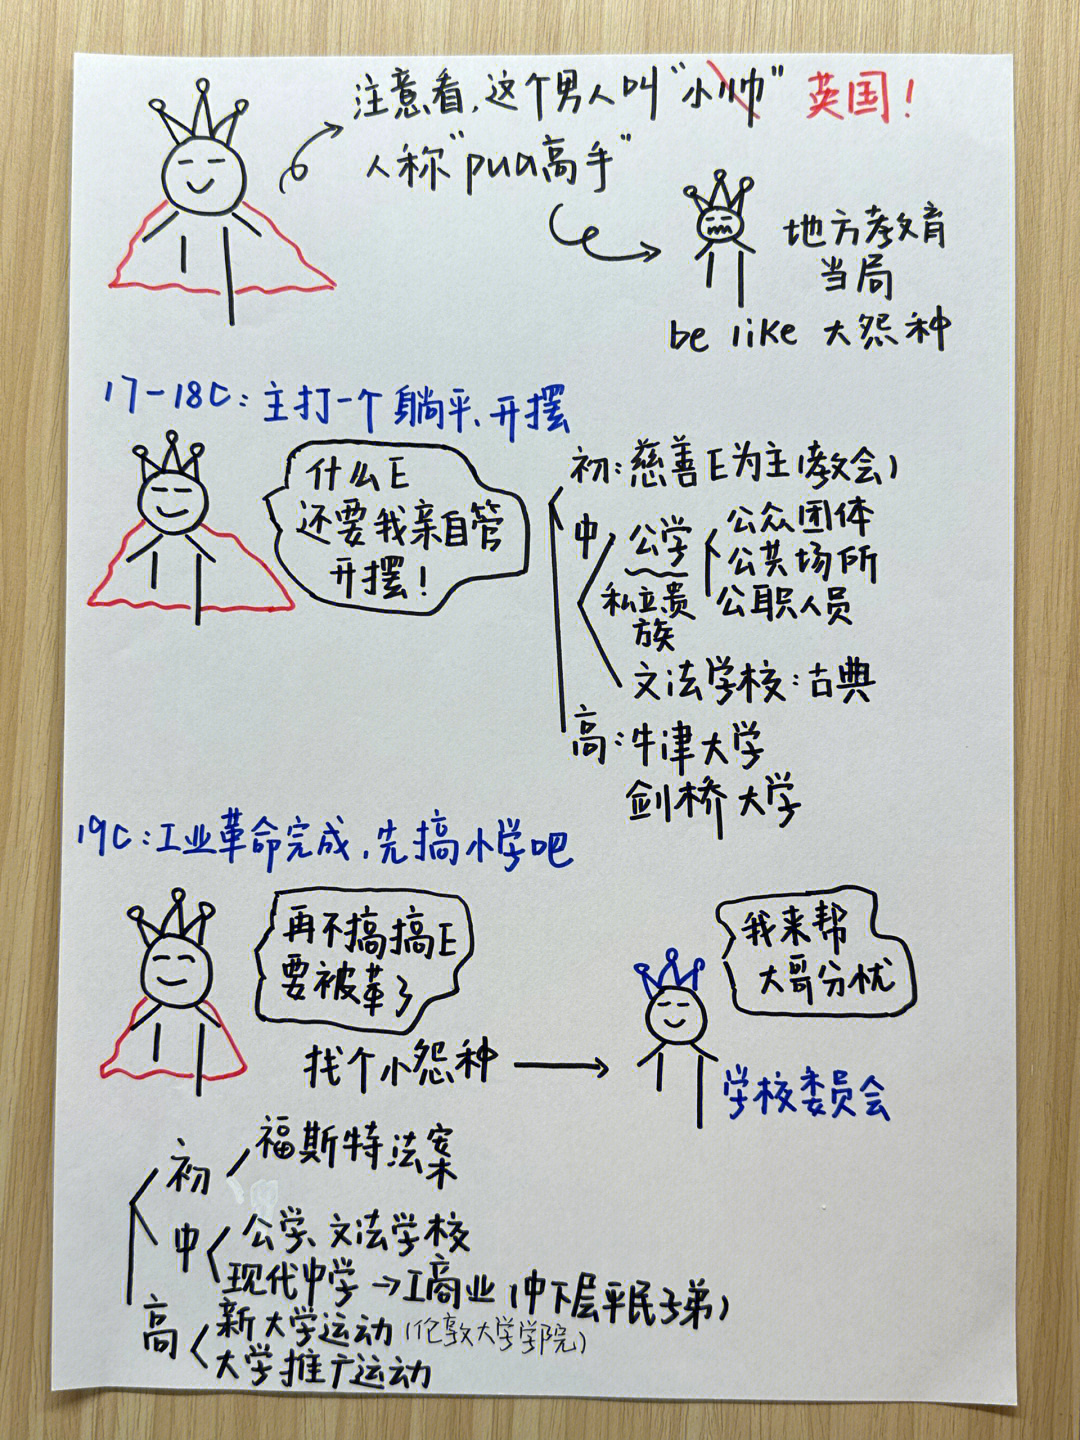 注意看，这个男人叫“小帅” 英国！
人称“pua高手”
地方教育
当局
be like 大怨种
17-18C：主打一个躺平、开摆
什么E
还要我亲自管
开摆！
初：慈善E为主(教会)
中
公学
私立贵
族
公众团体
公共场所
公职人员
文法学校：古典
高：牛津大学
剑桥大学
19C：工业革命完成，先搞小学吧
再不搞搞E
要被革了
找个小怨种
我来帮
大哥分忧
学校委员会
初 福斯特法案
中 公学、文法学校
现代中学→工商业(中下层平民子弟)
高 新大学运动(伦敦大学学院)
大学推广运动